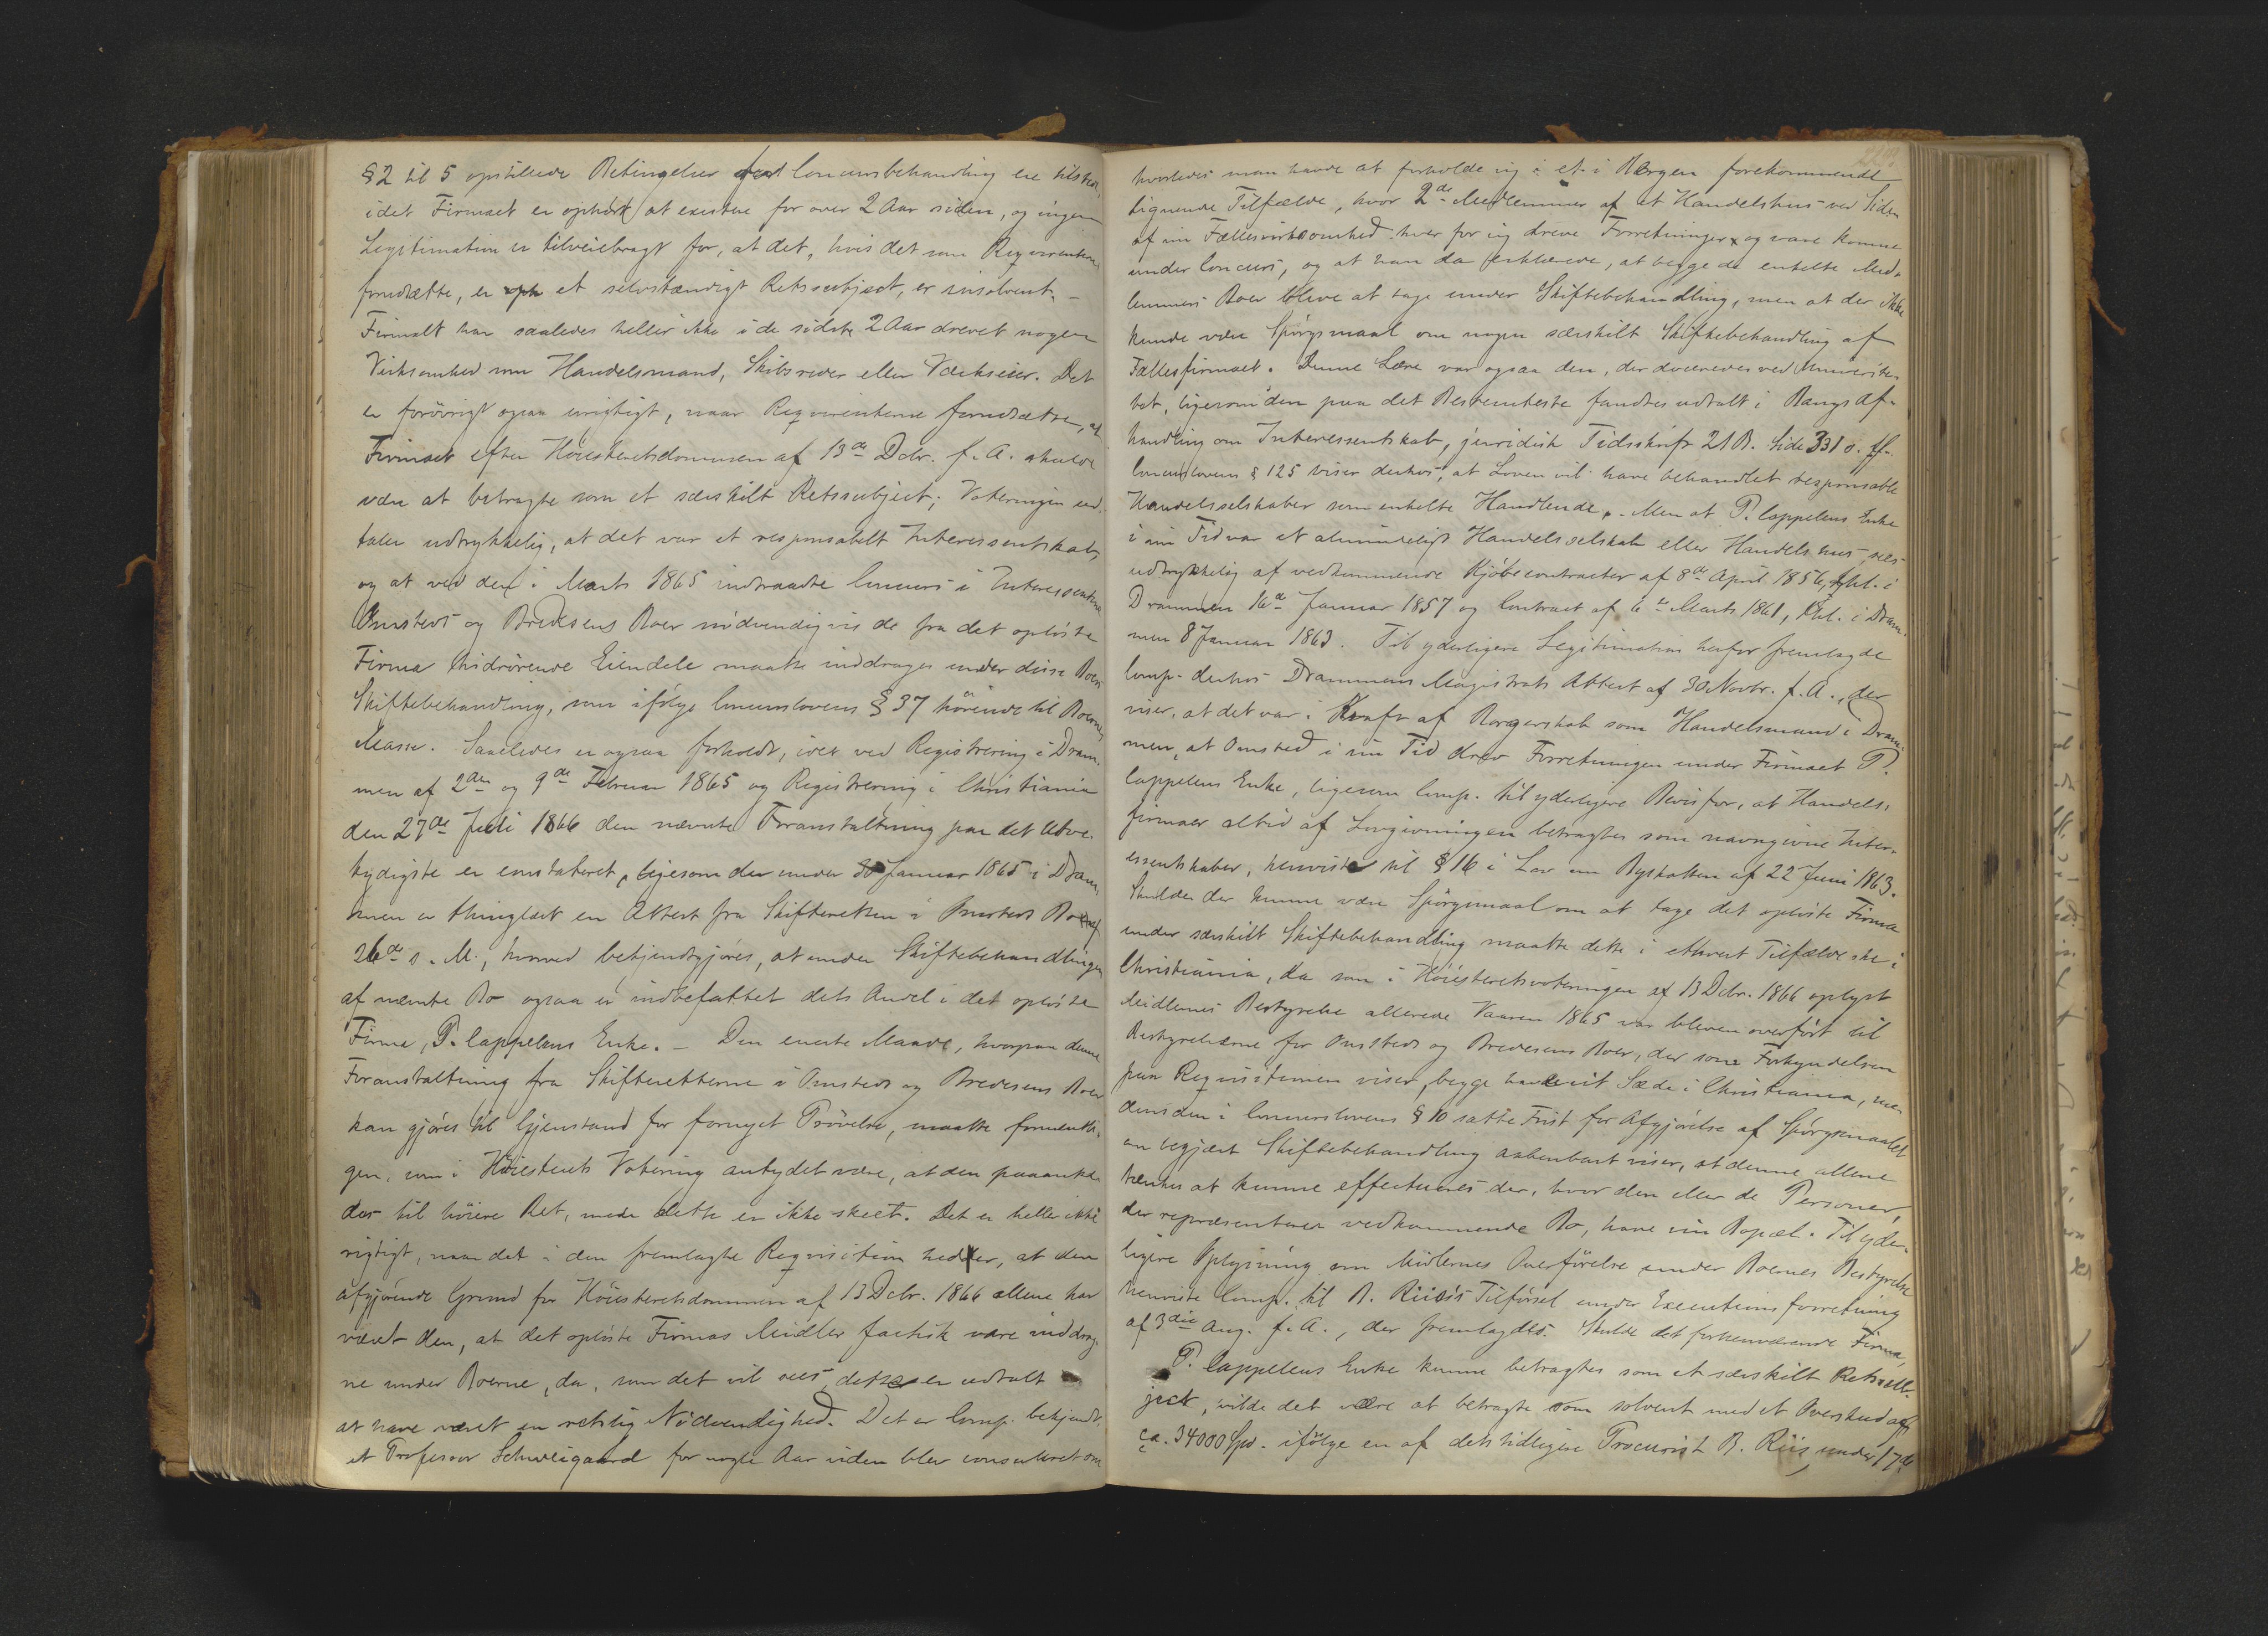 §2 til 5 opstillede Betingelser for Concursbehandling ere tilstede,
idet Firmaet er ophørt at existere for over 2 Aar siden, og ingen
Legitimation er tilveiebragt for, at det, hvis det som Reqvirenterne
forudsætte, er et selvstændigt Retssubject, er insolvent. –
Firmaet har saaledes heller ikke i de sidste 2 Aar drevet nogen
Virksomhed som Handelsmand, Skibsreder eller Værkseier. Det
er forøvrigt ogsaa urigtigt, naar Reqvirenterne forudsætte, at
Firmaet efter Høiesteretsdommen af 13de Dcbr. f. A. skulde
være at betragte som et særskilt Retssubject; Voteringen ud-
taler udtrykkelig, at det var et responsabelt Interessentskab,
og at ved den i Marts 1865 indtraadte Concurs i Interessenterne
Omsteds og Bredesens Boer nødvendigvis de fra det opløste
Firma hidrørende Eiendele maatte inddrages under disse Boers
Skiftebehandling, som ifølge Concurslovens § 37 hørende til Boernes
Masse. Saaledes er ogsaa forholdt, idet ved Registrering i Dram-
men af 2den og 9de Februar 1865 og Registrering i Christiania
den 27de Juli 1866 den nævnte Foranstaltning paa det utve-
tydigste er constateret, ligesom der under 30 Januar 1865 i Dram-
men er thinglæst en Attest fra Skifteretten i Omsteds Bo af
26de s. M., hvorved bekjendtgjøres, at under Skiftebehandlingen
af nævnte Bo ogsaa er indbefattet dets Andel i det opløste
Firma, P. Cappelens Enke. – Den eneste Maade, hvorpaa denne
Foranstaltning fra Skifteretterne i Omsteds og Bredesens Boer
kan gjøres til Gjenstand for fornyet Prøvelse, maatte formentli-
gen, som i Høiesterets Votering antydet være, at den paaanke-
des til høiere Ret, mede dette er ikke skeet. Det er heller ikke
rigtigt, naar det i den fremlagte Reqvisition hedder, at den
afgjørende Grund for Høiesteretsdommen af 13 Dcbr. 1866 allene har
været den, at det opløste Firmas Midler factisk vare inddrag-
ne under Boerne, da, som det vil sees, dette er udtalt
at have været en retslig Nødvendighed. Det er Comp. bekjendt,
at Professor Schweigaard for nogle Aar siden blev consuleret om
hvorledes man havde at forholde sig i et i Bergen forekommende
lignende Tilfælde, hvor 2de Medlemmer af et Handelshus ved Siden
af sin Fællesvirksomhed hver for sig dreve Forretninger og vare komne
under Concurs, og at han da erklærede, at begge de enkelte Med-
lemmers Boer bleve at tage under Skiftebehandling, men at der ikke
kunde være Spørgsmaal om nogen særskilt Skiftebehandling af
Fællesfirmaet. Denne Lære var ogsaa den, der doceredes ved Universite-
tet, ligesom den paa det Bestemteste fandtes udtalt i Bangs Af-
handling om Interessentskab, juridisk Tidsskrift 21 B. Side 331 o. ff.
Concurslovens § 125 viser derhos, at Loven vil have behandlet responsable
Handelsselskaber som enkelte Handlende. – Men at P. Cappelens Enke
i sin Tid var et almindeligt Handelsselskab eller Handelshus, sees
udtrykkelig af vedkommende Kjøbecontracter af 8de April 1856, thl. i
Drammen 16de Januar 1857 og Contract af 6te Marts 1861, thl. i Dram-
men 8 Januar 1863. Til yderligere Legitimation herfor fremlagde
Comp. derhos Drammens Magistrats Attest af 30 Novbr. f. A., der
viser, at det var i Kraft af Borgerskab som Handelsmand i Dram-
men, at Omsted i sin Tid drev Forretningen under Firmaet P.
Cappelens Enke, ligesom Comp. til yderligere Bevis for, at Handels-
firmaer altid af Lovgivningen betragtes som navngivne Inter-
essentskaber, henviste til § 16 i Lov om Byskatten af 22 Juni 1863.
Skulde der kunne være Spørgsmaal om at tage det opløste Firma
under særskilt Skiftebehandling maatte dette i ethvert Tilfælde ske i
Christiania, da som i Høiesteretsvoteringen af 13 Dcbr. 1866 oplyst
Midlernes Bestyrelse allerede Vaaren 1865 var bleven overført til
Bestyrelserne for Omsteds og Bredesens Boer, der som Forkyndelsen
paa Reqvisitionen viser, begge have sit Sæde i Christiania, me-
dens den i Concurslovens § 10 satte Frist for Afgjørelse af Spørgsmaalet
om begjært Skiftebehandling aabenbart viser, at denne allene
tænkes at kunne effectueres der, hvor den eller de Personer,
der repræsenterer vedkommende Bo, have sin Bopæl. Til yder-
ligere Oplysning om Midlernes Overførelse under Boernes Bestyrelse
henviste Comp. til B. Riis's Tilførsel under Executionsforretning
af 3die Aug. f. A., der fremlagdes. Skulde det forhenværende Firma,
P. Cappelens Enke kunne betragtes som et særskilt Retssub-
ject, vilde det være at betragte som solvent med et Overskud af
ca. 34000 Spd. ifølge en af dets tidligere Procurist B. Riis under 17de